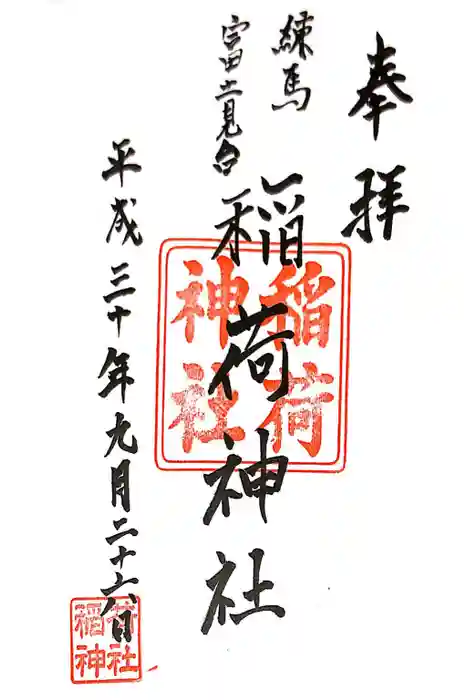 奉拝
練馬
富士見台
稲荷神社
稲荷
神社
平成三十年九月二十六日
稲荷
神社